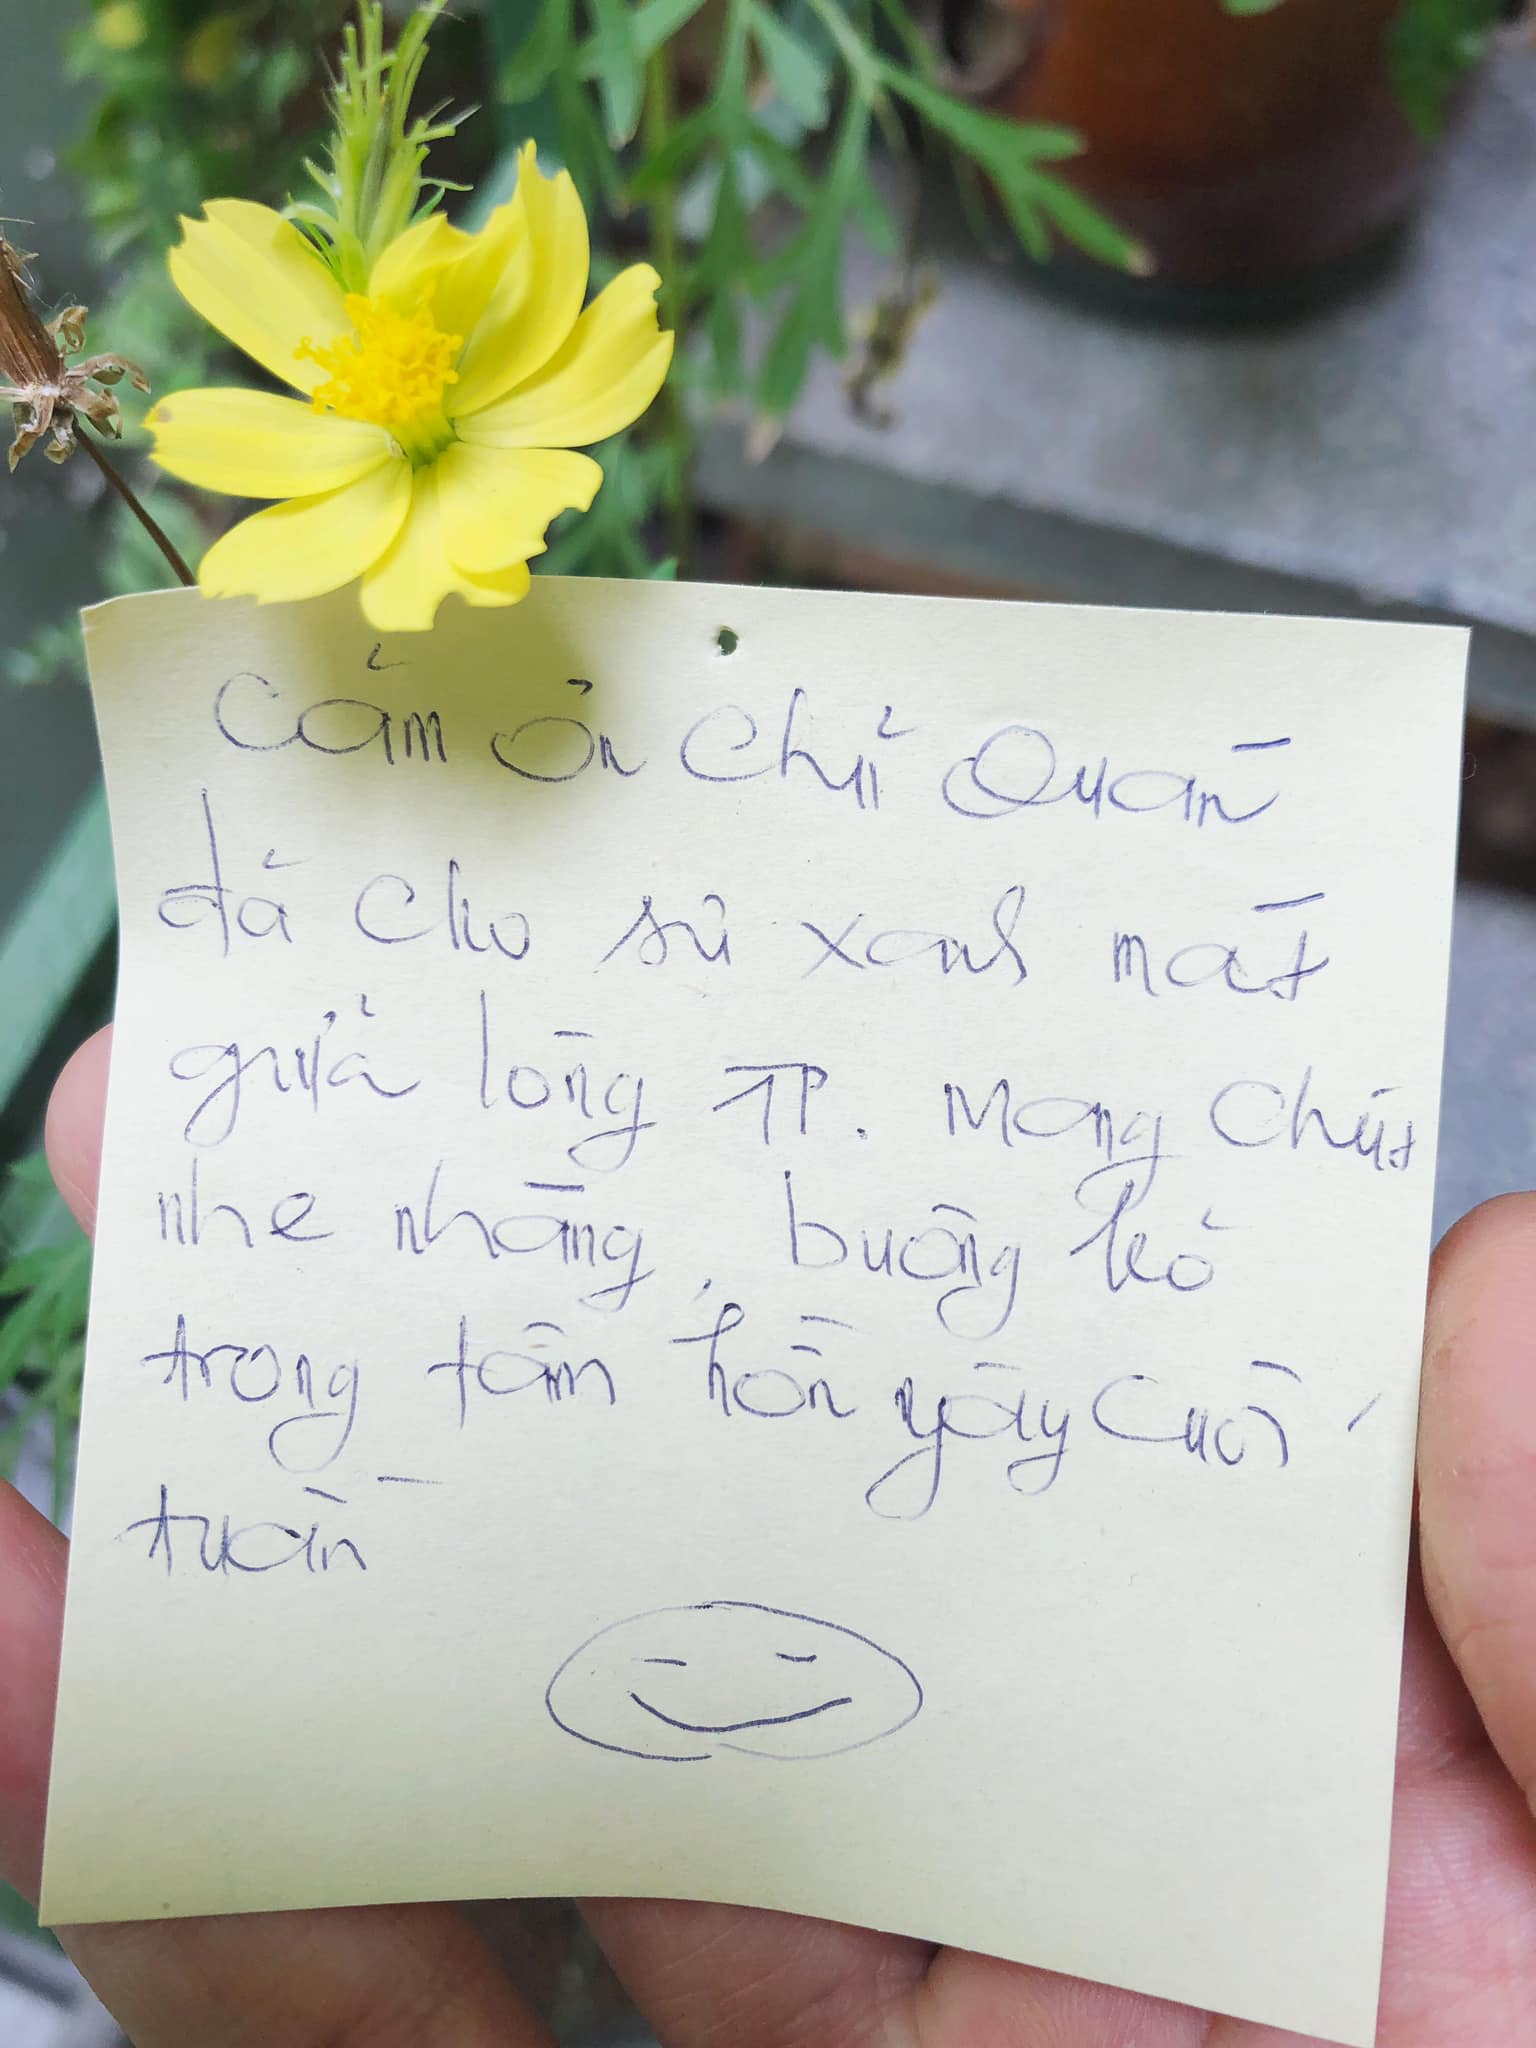 Cảm ơn Chủ Quán
đã cho sự xanh mát
giữa lòng TP. Mong chút
nhẹ nhàng, buông bỏ
trong tâm hồn ngày Cuối
tuần